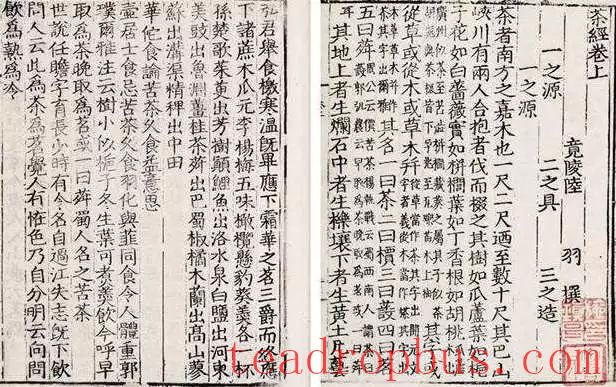 茶經卷上
竟陵陸 羽 撰
一之源 二之具 三之造
一之源
茶者南方之嘉木也一尺二尺迺至數十尺其巴山
峽川有兩人合抱者伐而掇之其樹如瓜蘆葉如梔
子花如白薔薇實如栟櫚葉如丁香根如胡桃
其字或
從草或從木或草木并
其名一曰茶二曰檟三曰蔎四曰茗
五曰荈
其地上者生爛石中者生櫟壤下者生黃土凡藝
弘君舉食檄寒溫既畢應下霜華之茗三爵而終應
下諸蔗木瓜元李楊梅五味橄欖懸豹葵羹各一杯
孫楚歌茱萸出芳樹顛鯉魚出洛水泉白鹽出河東
美豉出魯淵薑桂茶荈出巴蜀椒橘木蘭出高山蓼
蘇出溝渠精稗出中田
華佗食論苦茶久食益意思
壺居士食忌苦茶久食羽化與韭同食令人體重郭
璞爾雅注云樹小似梔子冬生葉可煮羹飲今呼早
取為茶晚取為茗或一曰荈蜀人名之苦茶
世說任瞻字育長少時有令名自過江失志既下飲
問人云此為茶為茗覺人有怪色乃自分明云向問
飲為熱為冷
teadropbus.com